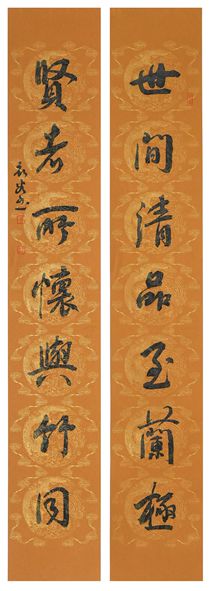 世間清品至蘭極
賢者所懷與竹同